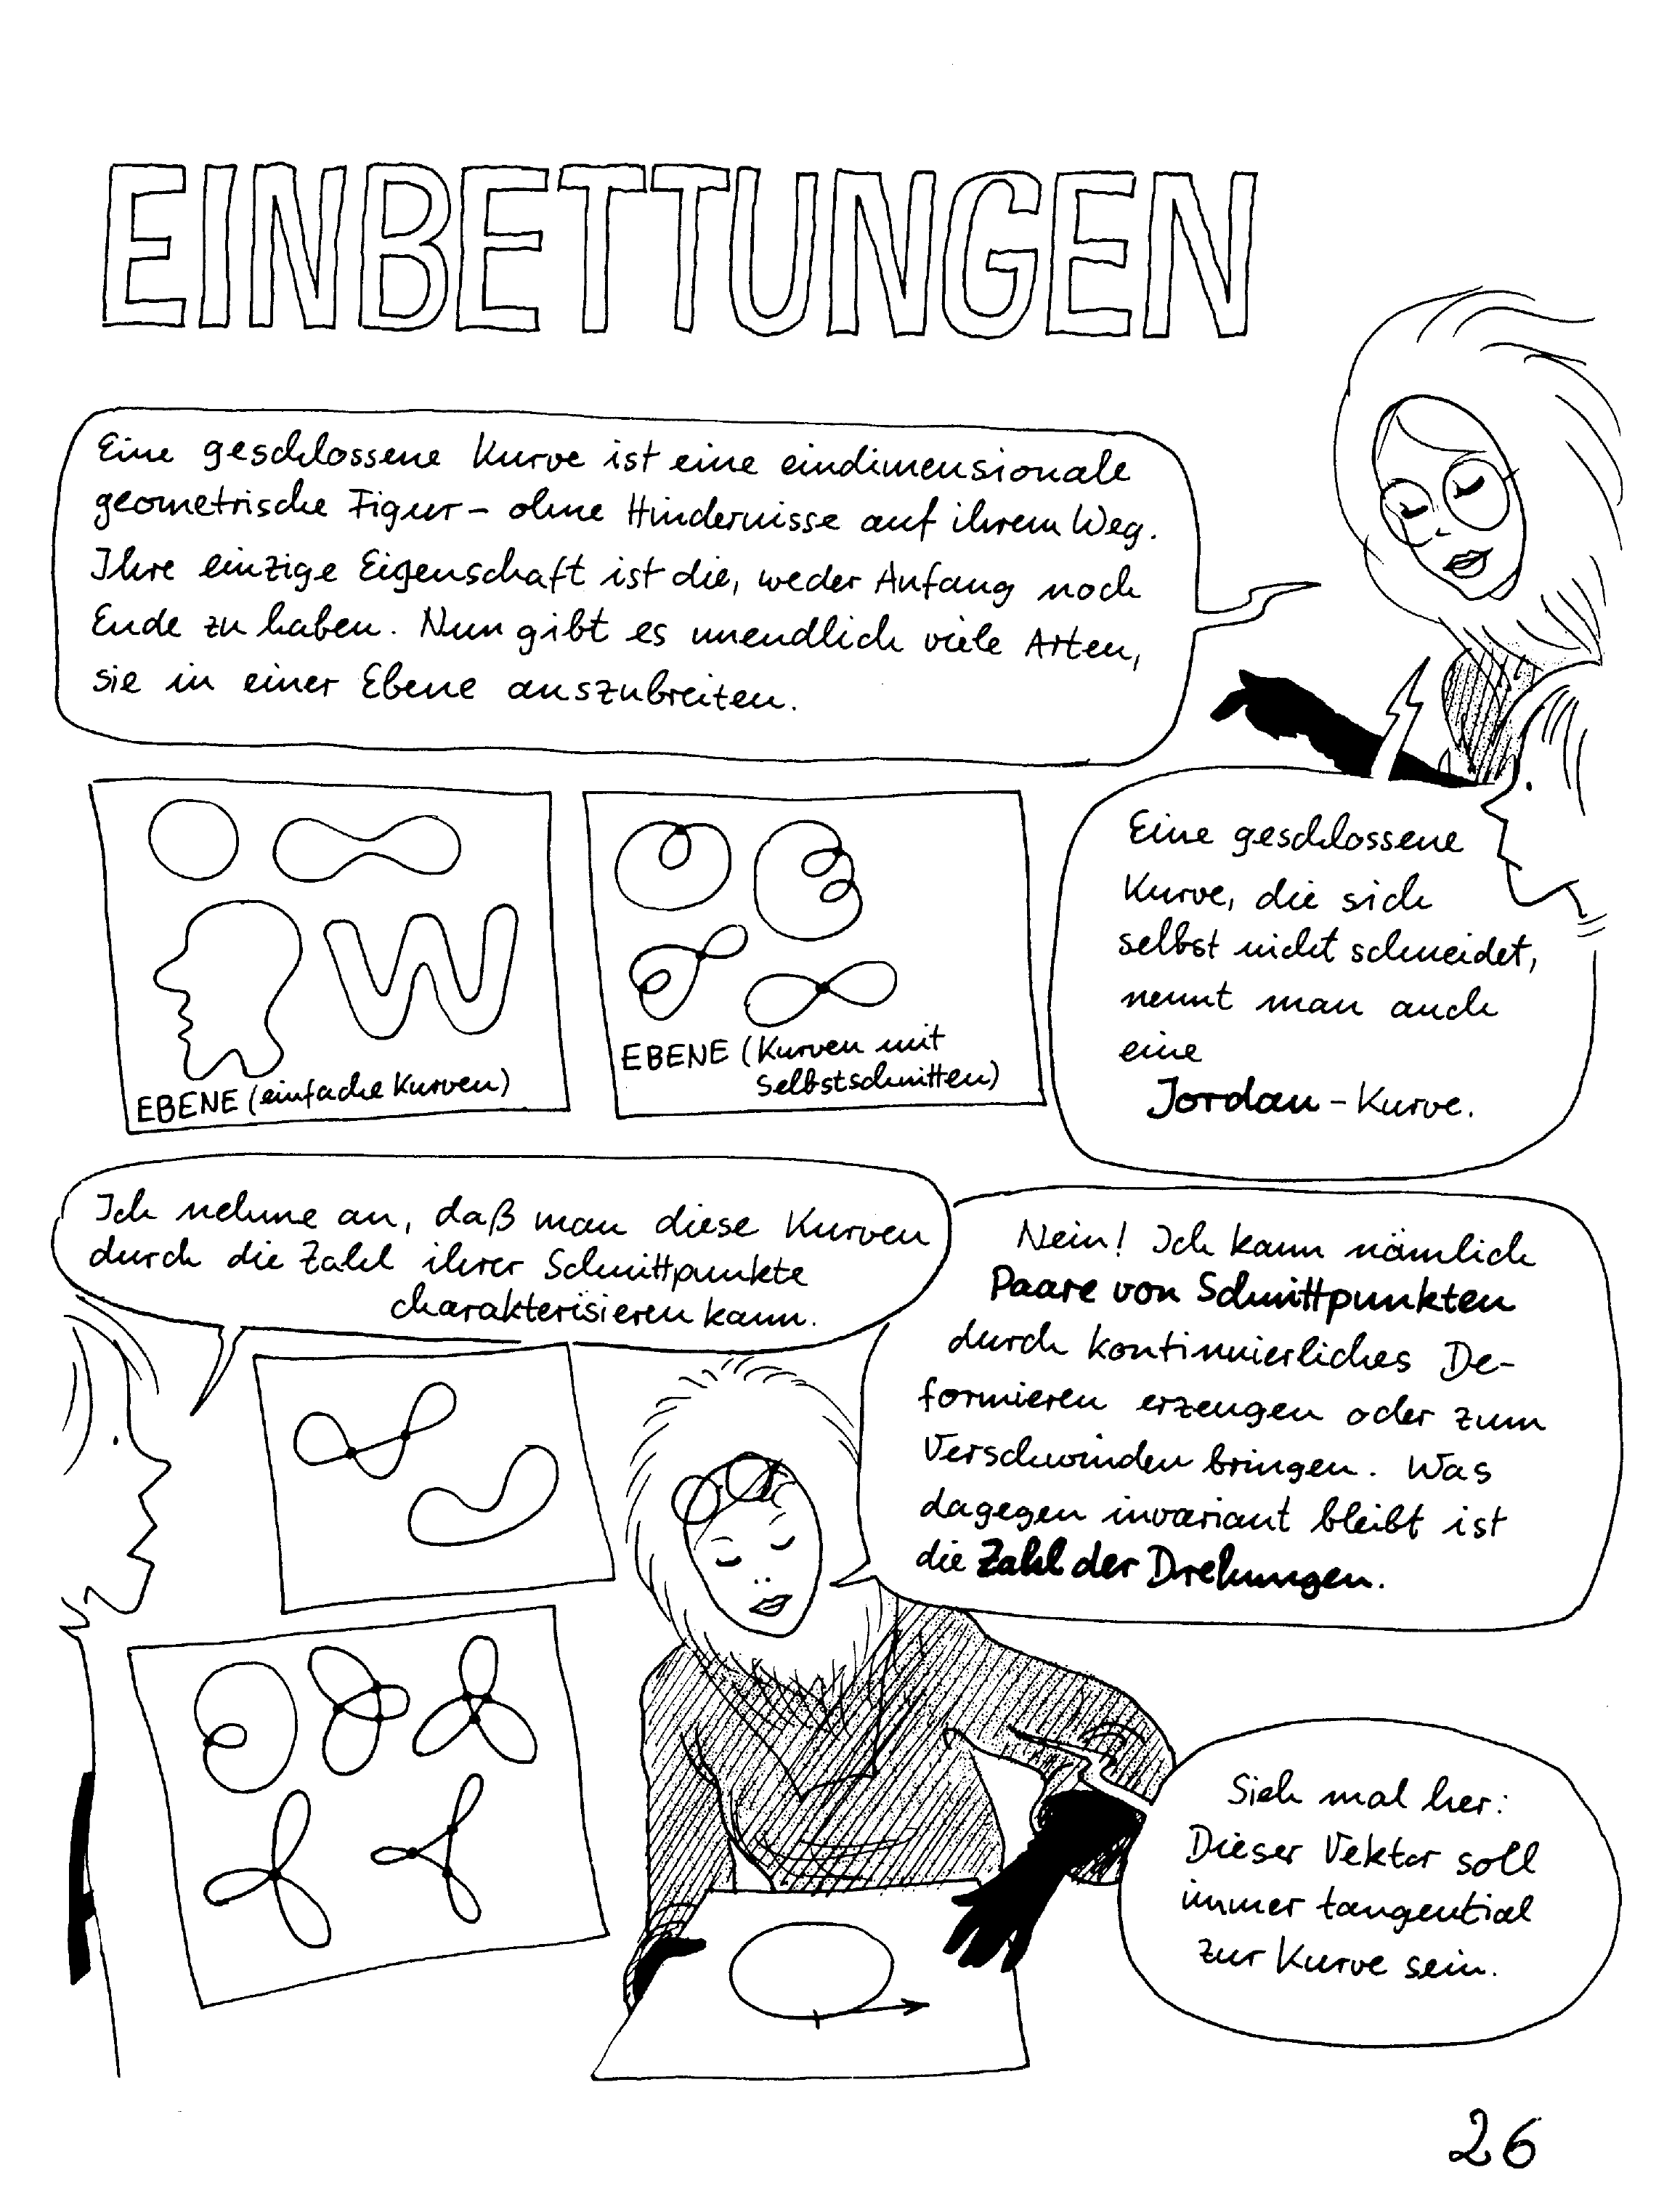 EINBETTUNGEN
Eine geschlossene Kurve ist eine eindimensionale
geometrische Figur – ohne Hindernisse auf ihrem Weg.
Ihre einzige Eigenschaft ist die, weder Anfang noch
Ende zu haben. Nun gibt es unendlich viele Arten,
sie in einer Ebene auszubreiten.
EBENE (einfache Kurven)
EBENE (Kurven mit
Selbstschnitten)
Eine geschlossene
Kurve, die sich
selbst nicht schneidet,
nennt man auch
eine
Jordan – Kurve.
Ich nehme an, daß man diese Kurven
durch die Zahl ihrer Schnittpunkte
charakterisieren kann.
Nein! Ich kann nämlich
Paare von Schnittpunkten
durch kontinuierliches De-
formieren erzeugen oder zum
Verschwinden bringen. Was
dagegen invariant bleibt ist
die Zahl der Drehungen.
Sieh mal her:
Dieser Vektor soll
immer tangential
zur Kurve sein.
26